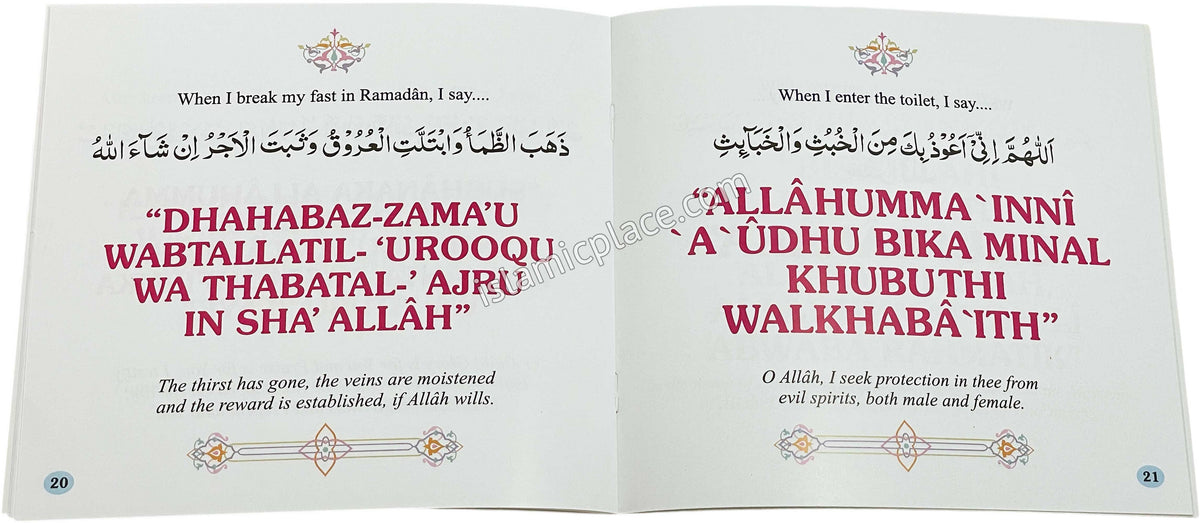 When I break my fast in Ramadân, I say....
ذَهَبَ الظَّمَأُ وَابْتَلَّتِ الْعُرُوْقُ وَثَبَتَ الْاَجْرُ اِنْ شَآءَ اللهُ
“DHAHABAZ-ZAMA’U
WABTALLATIL- ‘UROOQU
WA THABATAL-’ AJRU
IN SHA’ ALLÂH”
The thirst has gone, the veins are moistened
and the reward is established, if Allâh wills.
20
When I enter the toilet, I say....
اَللّٰهُمَّ اِنِّىْۤ اَعُوْذُ بِكَ مِنَ الْخُبُثِ وَالْخَبَآئِثِ
“ALLÂHUMMA `INNÎ
`A`ÛDHU BIKA MINAL
KHUBUTHI
WALKHABÂ`ITH”
O Allâh, I seek protection in thee from
evil spirits, both male and female.
21
islamicplace.com